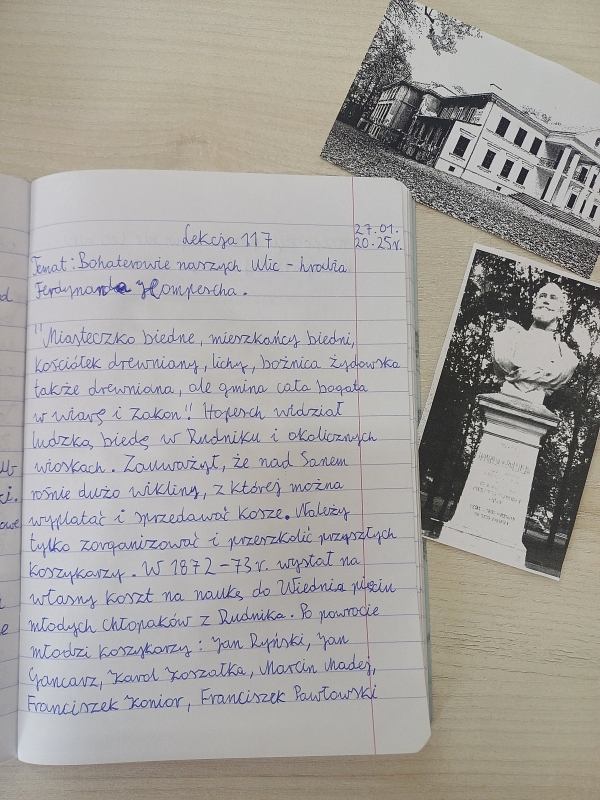 Lekcja 117
27.01.
20.25r.
Temat: Bohaterowie naszych ulic - hrabia
Ferdynanda Hompescha.
"Miasteczko biedne, mieszkańcy biedni,
kościółek drewniany, lichy, bożnica żydowska
także drewniana, ale gmina cała bogata
w wiarę i zakon!! Hopesch widział
ludzką biedę w Rudniku i okolicznych
wioskach. Zauważył, że nad Sanem
rośnie dużo wikliny, z której można
wyplatać i sprzedawać kosze. Należy
tylko zorganizować i przeszkolić przyszłych
koszykarzy. W 1872-73 r. wysłał na
własny koszt na naukę do Wiednia pięciu
młodych chłopaków z Rudnika. Po powrocie
młodzi koszykarzy: Jan Ryński, Jan
Gancarz, Karol Koszałka, Marcin Madej,
Franciszek Konior, Franciszek Pawłowski